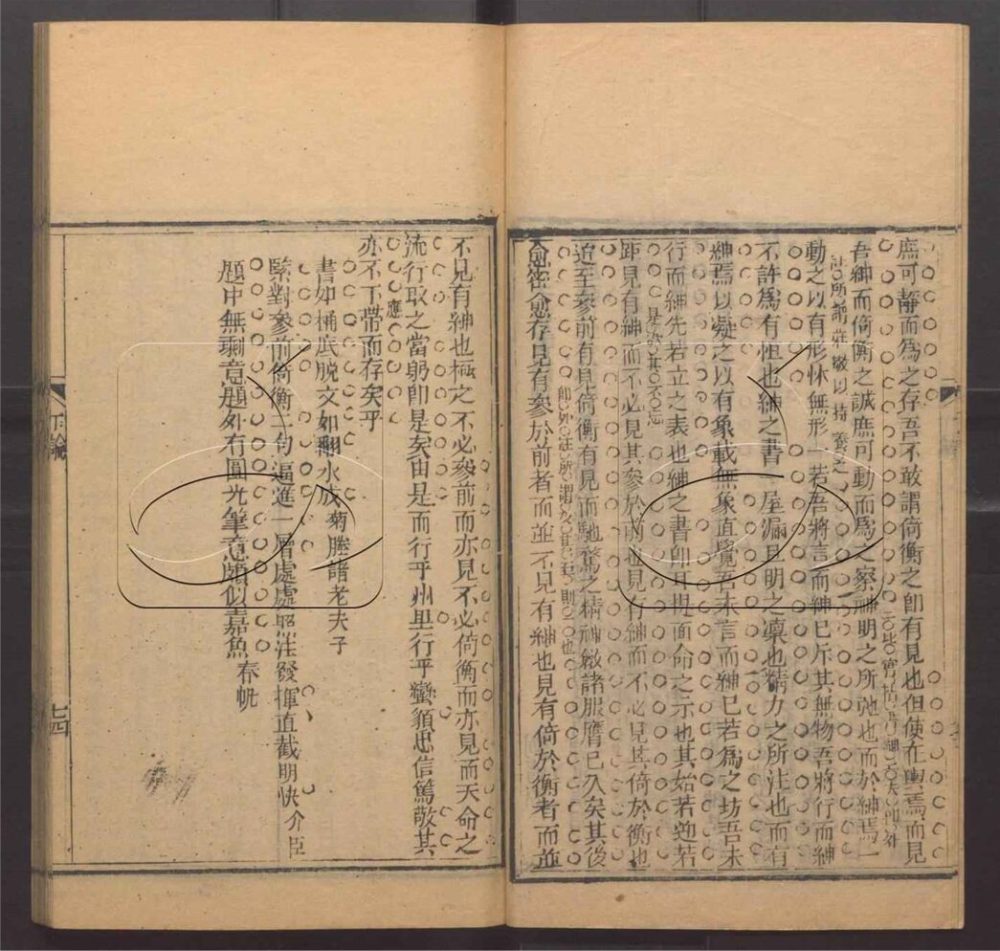 庶可靜而爲之存吾不敢謂倚衡之卽有見也但使在輿焉而見
吾紳而倚衡之誠庶可動而爲之察神明之所弛也而於紳焉一
註所謂莊敬以持養之
動之以有形怵無形一若吾將言而紳已斥其無物吾將行而紳
不許爲有恒也紳之書屋漏旦明之凜也精力之所注也而有
紳焉以凝之以有象載無象直覺吾未言而紳已若爲之坊吾未
行而紳先若立之表也紳之書卽耳提面命之示也其始若迎若
距見有紳而不必見其參於前也見有紳而不必見其倚於衡也
迨至參前有見倚衡有見而馳騖之精神斂諸服膺已久矣其後
愈密愈存見有參於前者而並不見有紳也見有倚於衡者而並
不見有紳也極之不必參前而亦見不必倚衡而亦見而天命之
流行取之當躬卽是矣由是而行乎州里行乎蠻貊忠信篤敬其
應
亦不下帶而存矣乎
書如桶底脫文如翻水成 菊塍譜老夫子
緊對參前倚衡二句逼進一層處處照注發揮直截明快 介臣
題中無剩意題外有圓光筆意頗似嘉魚 春帆
下論
七四